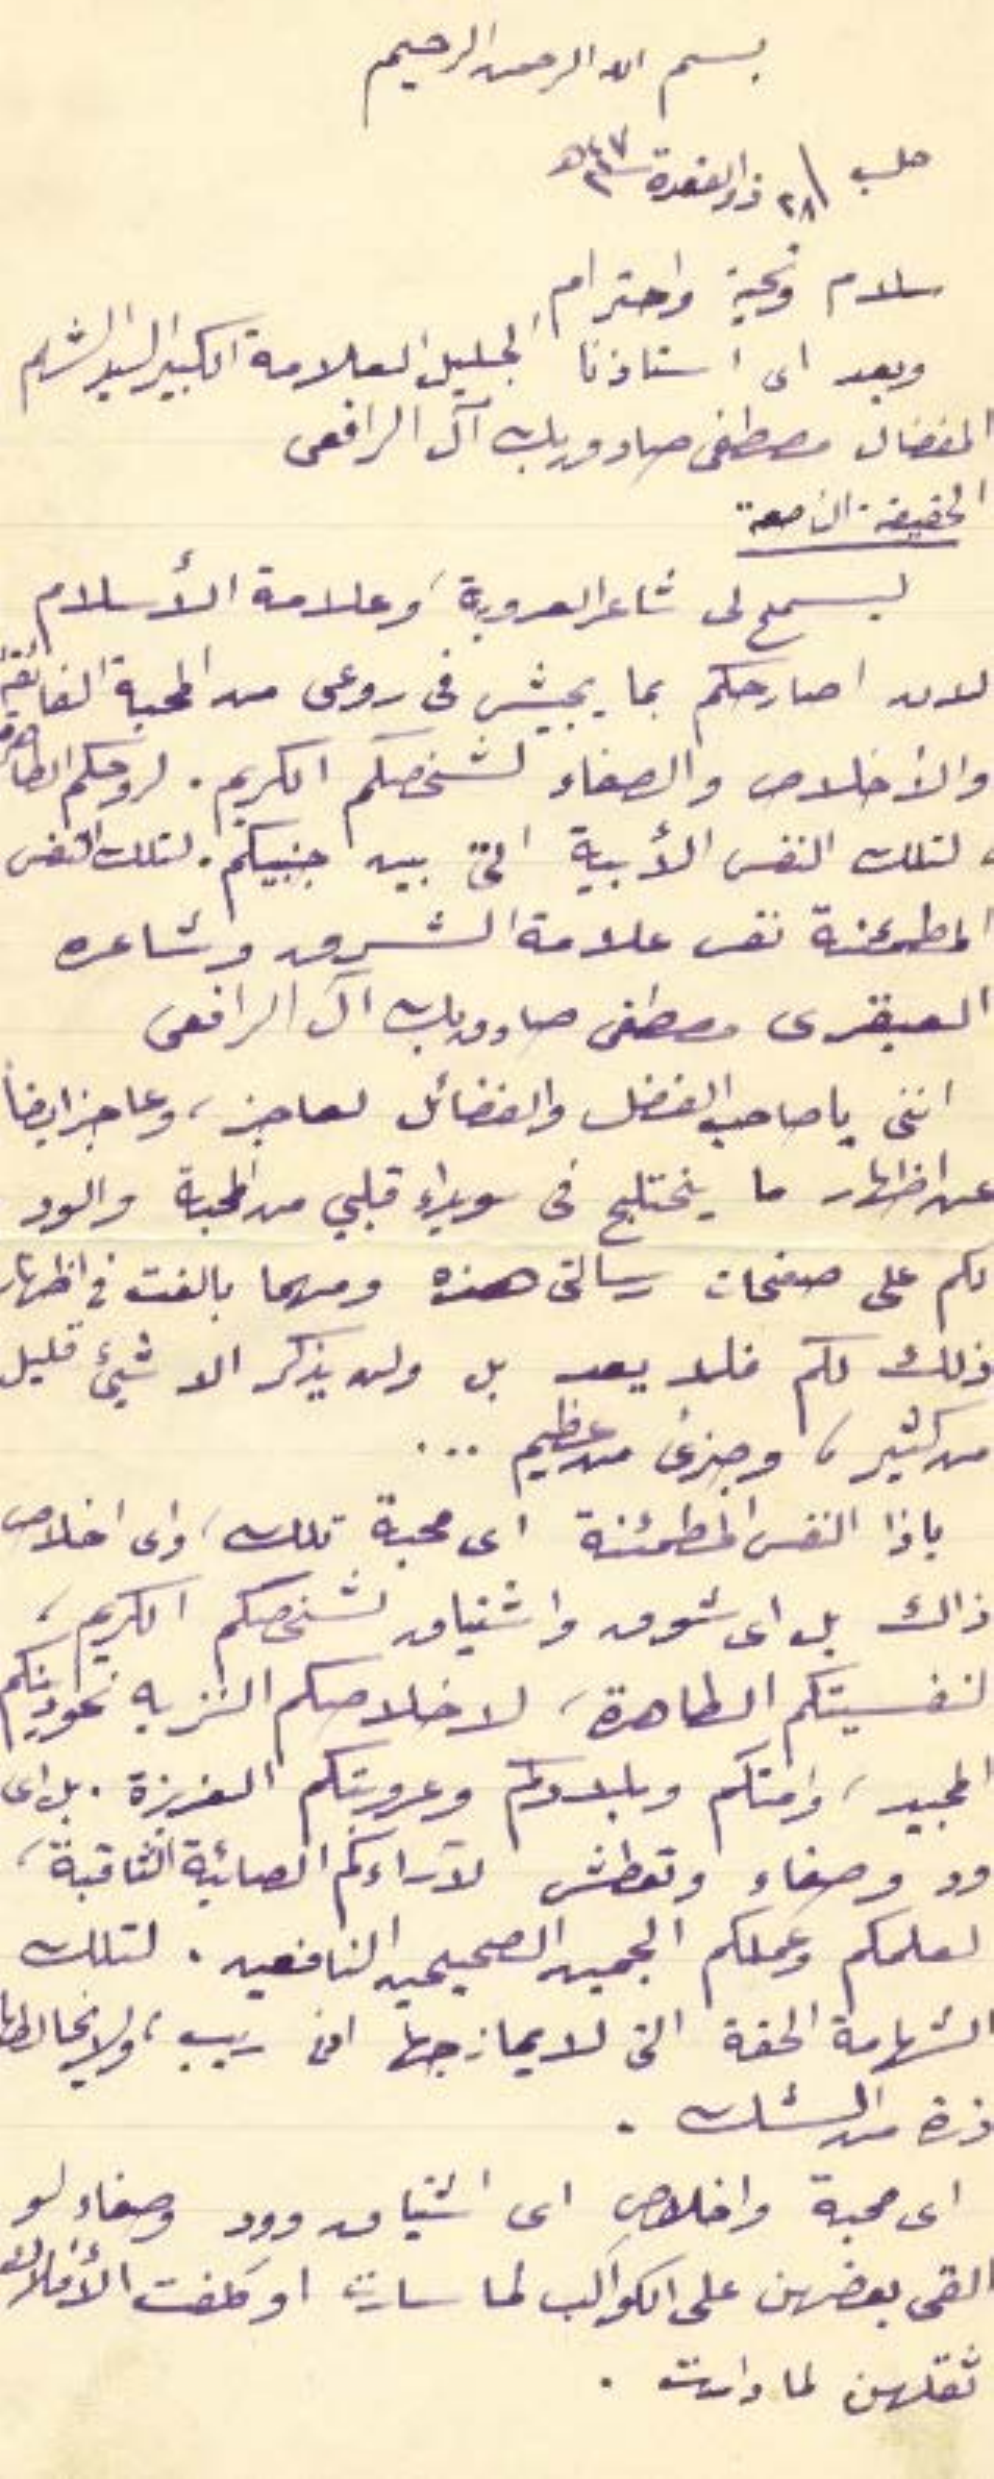 بسم الله الرحمن الرحيم
حلب ٢٨ ذو القعدة سنة ٤٧ هـ
سلام وتحية واحترام
وبعد اى استاذنا الجليل العلامة الكبير السيد الشهم
المفضال مصطفى صادق بك آل الرافعى
الحقيقة الناصعة
ليسمح لى شاعر العروبة، وعلامة الأسلام
لان اصارحكم بما يجيش فى روعى من المحبة الفائقة
والأخلاص والصفاء لشخصكم الكريم. لروحكم الطاهرة
، لتلك النفس الأبية التى بين جنبيكم. لتلك النفس
المطمئنة نفس علامة الشرق وشاعره
العبقرى مصطفى صادق بك آل الرافعى
اننى يا صاحب الفضل والفضائل لعاجز، وعاجز ايضاً
عن اظهار ما يختلج فى سويداء قلبي من المحبة والود
لكم على صفحات رسالتى هذه ومهما بالغت في اظهار
ذلك لكم فلا يعد بل ولن يذكر الا شيئ قليل
من كثير، وجزئ من عظيم ...
ياذا النفس المطمئنة اى محبة تلك، واى اخلاص
ذاك بل اى شوق واشتياق لشخصكم الكريم،
لنفسيتكم الطاهرة، لاخلاصكم النزيه نحو دينكم
المجيد، وامتكم وبلادكم وعروبتكم العزيزة. بل اى
ود وصفاء وتعطش لآراءكم الصائبة الثاقبة،
لعلمكم وعملكم الجمين الصحيحين النافعين. لتلك
الشهامة الحقة التى لا يمازجها اى ريب، ولا يخالطها
ذرة من الشك.
اى محبة واخلاص اى اشتياق وود وصفاء لو
القى بعضهن على الكواكب لما سارت او كلفت الأفلاك
ثقلهن لما دارت.